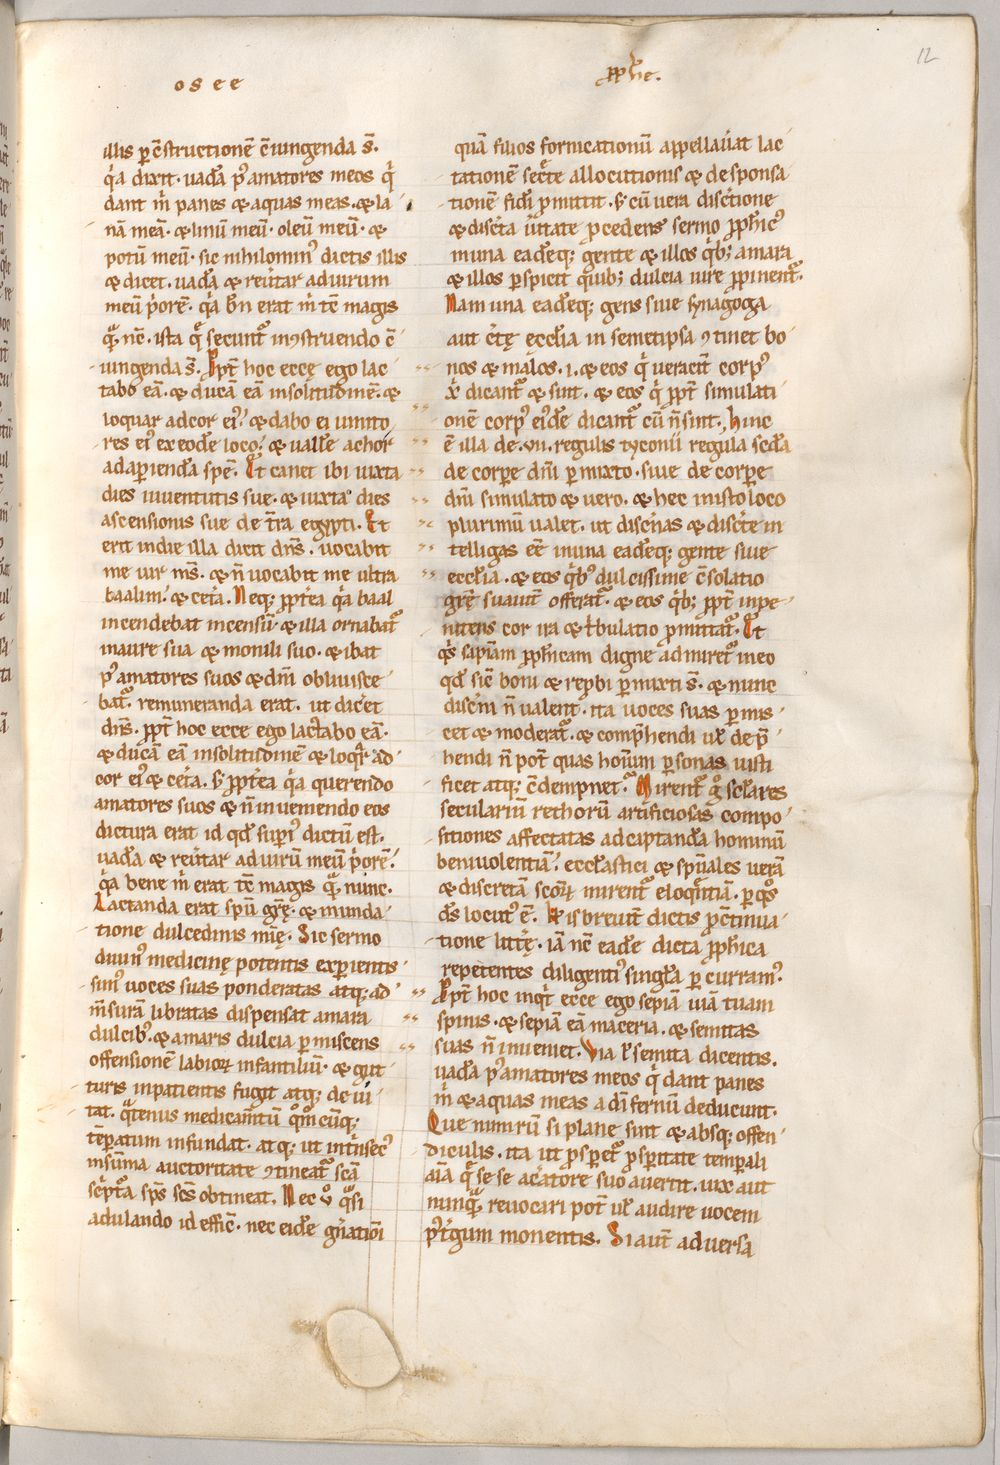 12
osee
ꝓph̄e.
illis ꝑ c̄structionē c̄iungenda s̄.
q̇a dixit. uadā pꝰ amatores meos q̇
dant m̄ panes & aquas meas. & la
nā meā. & linū meū. oleū meū. &
potū meū. sic nihilominꝰ dictis illis
& dicet. uadā & reūtar ad uirum
meū ṗorē. q̇a bn̄ erat m̄ tē magis
qᷓ nc̄. ista q̄ secunt᷑ in ꝯstruendo c̄
iungenda s̄. Ppt̄ hoc ecce ego lac
tabo eā. & ducā eā in solitudinē. &
loquar ad cor eiꝰ. & dabo ei uinito
res eiꝰ ex eodē loco. & uallē achor
ad aperiendā spē. Et canet ibi iuxta
dies iuuentutis sue. & iuxta dies
ascensionis sue de t̄ra egypti. Et
erit in die illa dicit dn̄s. uocabit
me uir mꝰs. & n̄ uocabit me ultra
baalim. & cet̄a. Neqꝫ ꝓpt̄ea q̇a baal
incendebat incensū. & illa ornabat᷑
inaure sua & monili suo. & ibat
pꝰ amatores suos & dm̄ obliuisce
bat᷑. remuneranda erat. ut dic̄et
dn̄s. ppt̄ hoc ecce ego lactabo eā.
& ducā eā in solitudinē & loqr̄ ad
cor eiꝰ & cet̄a. s; ꝓpt̄ea q̇a querendo
amatores suos & n̄ inueniendo eos
dictura erat id qd̄ supiꝰ dictū est.
uadā & reūtar ad uirū meū ṗorē.
q̇a bene m̄ erat tē magis qᷓ nunc.
Lactanda erat spū grē. & munda
tione dulcedinis mīe. Sic sermo
diuinꝰ medicine potentis experientis
simꝰ uoces suas ponderatas atqꝫ ad
m̄surā libratas dispensat amara
dulcibꝰ. & amaris dulcia ꝑmiscens
offensionē labioꝝ infantiliū. & gut
turis inpatientis fugit atqꝫ deui
tat. qᷓtenus medicam̄tū qm̊ cūqꝫ
tēperatum infundat. atqꝫ ut inṫnsecꝰ
in sūma auctoritate ꝯtineat᷑ scā
sċpt᷑a sps̄ scs̄ obtineat. Nec ů qᷓsi
adulando id effic̄. nec eidē gn̄ationi
quā filios fornicationū appellauat lac
tationē sec̄te allocutionis & desponsa
tionē fidi ꝓmittit. s; cū uera disc̄tione
& disc̄ta ūitate ꝓcedens sermo ꝓph̄icꝰ
in una eadēqꝫ gente & illos q̇bꝫ amara
& illos ꝑspicit quibꝫ dulcia iure ꝓpinent᷑.
Nam una eadēqꝫ gens siue synagoga
aut c̄te ecclīa in semetipsa ꝯtinet bo
nos & malos. i. & eos q̇ ueracit̄ corpꝰ
x̄ dicant᷑ & sunt. & eos q̇ ppt̄ simulati
onē corpꝰ eiꝰdē dicant᷑ cū n̄ sint. Hinc
ē illa de .vii. regulis tyconii regula scd̄a
de corpore dn̄i ꝑmixto. siue de corpore
dn̄i simulato & uero. & hec in isto loco
plurimū ualet. ut disc̄nas & disc̄te in
telligas eē in una eadēqꝫ gente siue
ecclīa. & eos q̇bꝰ dulcissime c̄solatio
grē suauit̄ offerat᷑. & eos q̇bꝫ ppt̄ inpe
nitens cor ira & ṫbulatio ꝓmittat᷑. Et
qͥs sapiam ꝓph̄icam digne admiret᷑ in eo
qd̄ sic̄ boni & rep̄bi ꝑmixti s̄. & nunc
disc̄ni n̄ ualent. ita uoces suas ꝑmis
cet & moderat᷑. & comp̄hendi ul̄ dep̄
hendi n̄ pot̄ quas hoīnum ꝑsonas iusti
ficet atqꝫ c̄dempnet. Mirent᷑ g̊ scl̄ares
seculariū rethorū artificiosas compo
sitiones affectatas ad captandā hominū
beniuolentiā. eccl̄astici & spūales uerā
& discretā scōꝝ mirent᷑ eloqn̄tiā. ꝑ qͦs
ds̄ locutꝰ ē. His breuit̄ dictis ꝓc̄tinua
tione litt̄e. iā nc̄ eadē dicta ꝓph̄ica
repetentes diligentiꝰ singl̄a ꝑcurramꝰ.
Ppt̄ hoc inqt̄ ecce ego sepiā uiā tuam
spinis. & sepiā eā maceria. & semitas
suas n̄ inueniet. Via ł semita dicentis.
uadā pꝰ amatores meos q̇ dant panes
m̄ & aquas meas ad īfernū deducunt.
Que nimirū si plane sint & absqꝫ offen
diculis. ita ut ꝓspect᷑ ꝓsperitate temporali
aīa q̄ se se ac̄atore suo auertit. uix aut
nunqᷓ reuocari pot̄ ul̄ audire uocem
pꝰt̄gum monentis. Si aut̄ aduersa